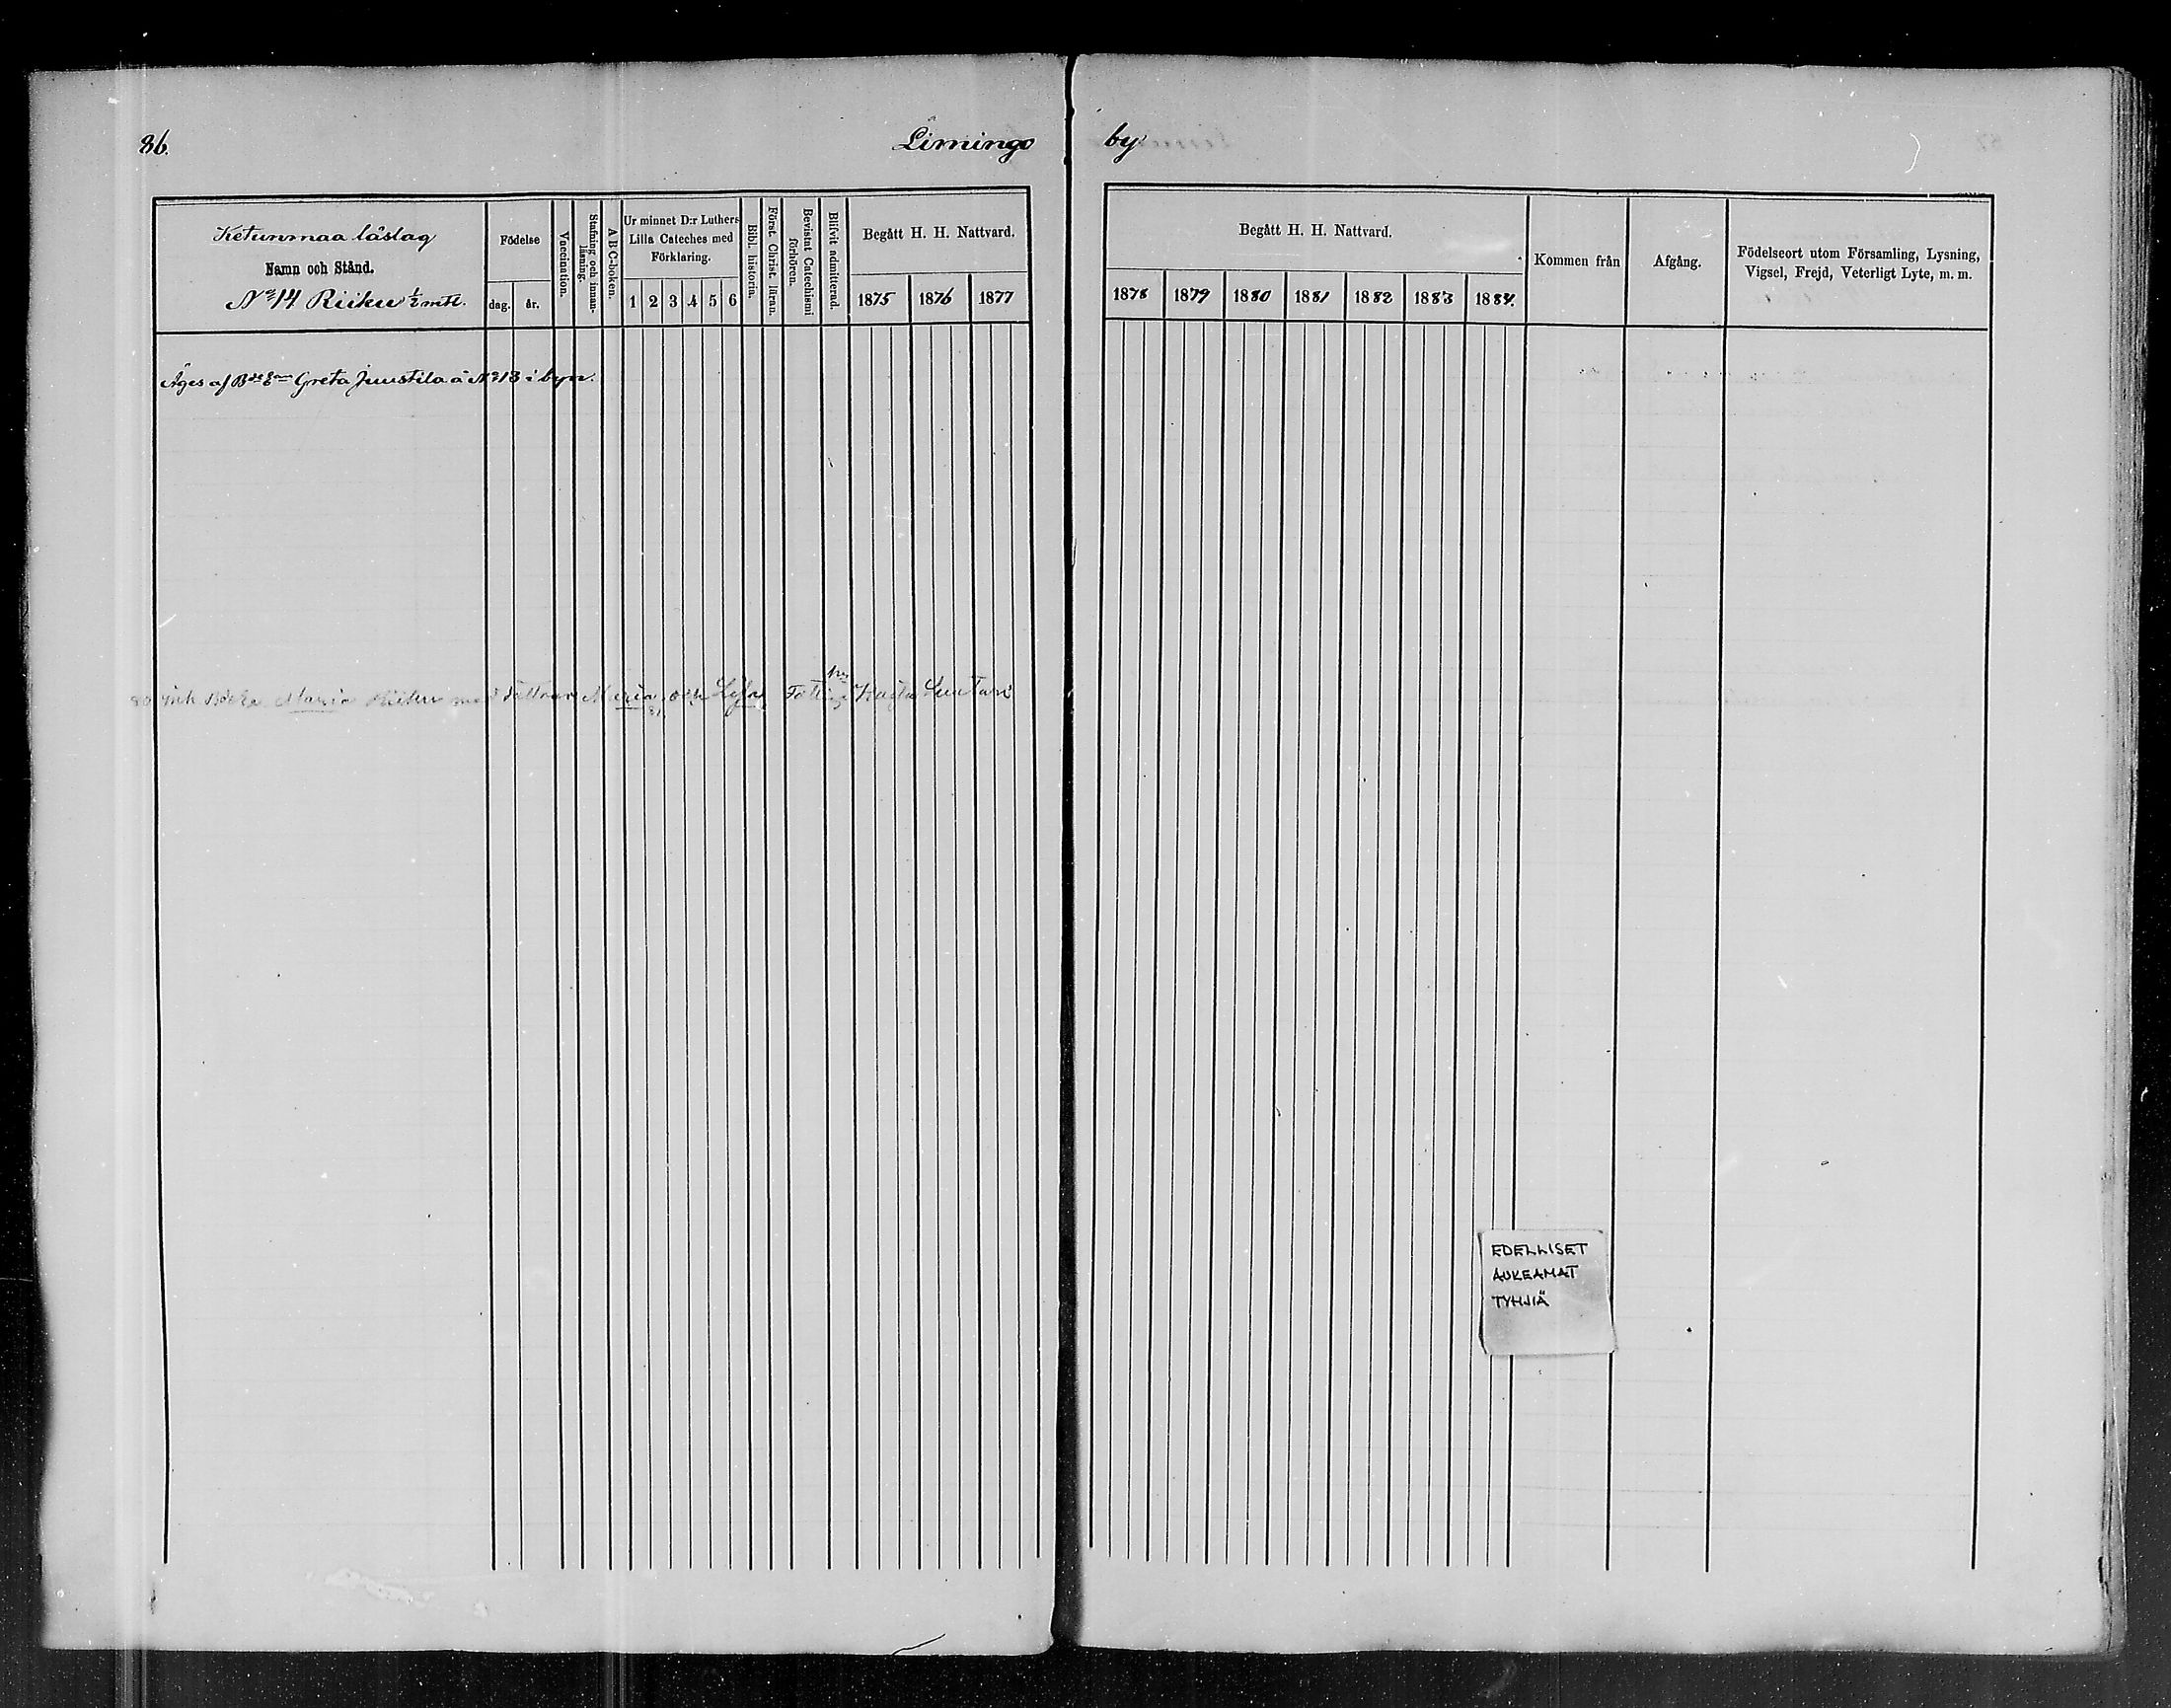 86.
Limingo by
Ketunmaa läslag
Namn och Stånd.
No 14 Riiku ½ mtl.
Födelse
dag. år.
Vaccination.
Stafning och innan-läsning.
A B C-boken.
Ur minnet D:r Luthers
Lilla Cateches med
Förklaring.
1 2 3 4 5 6
Bibl. historia.
Först. Christ. läran.
Bevistat Catechismi förhören.
Blifvit admitterad.
Begått H. H. Nattvard.
1875 1876 1877
Begått H. H. Nattvard.
1878 1879 1880 1881 1882 1883 1884.
Kommen från
Afgång.
Födelseort utom Församling, Lysning,
Vigsel, Frejd, Veterligt Lyte, m. m.
Äges af Greta Juustila å No 13 i byn.
Maria Riiku med döttrar Maria och Lisa Kajsa
EDELLISET
AUKEAMAT
TYHJIÄ